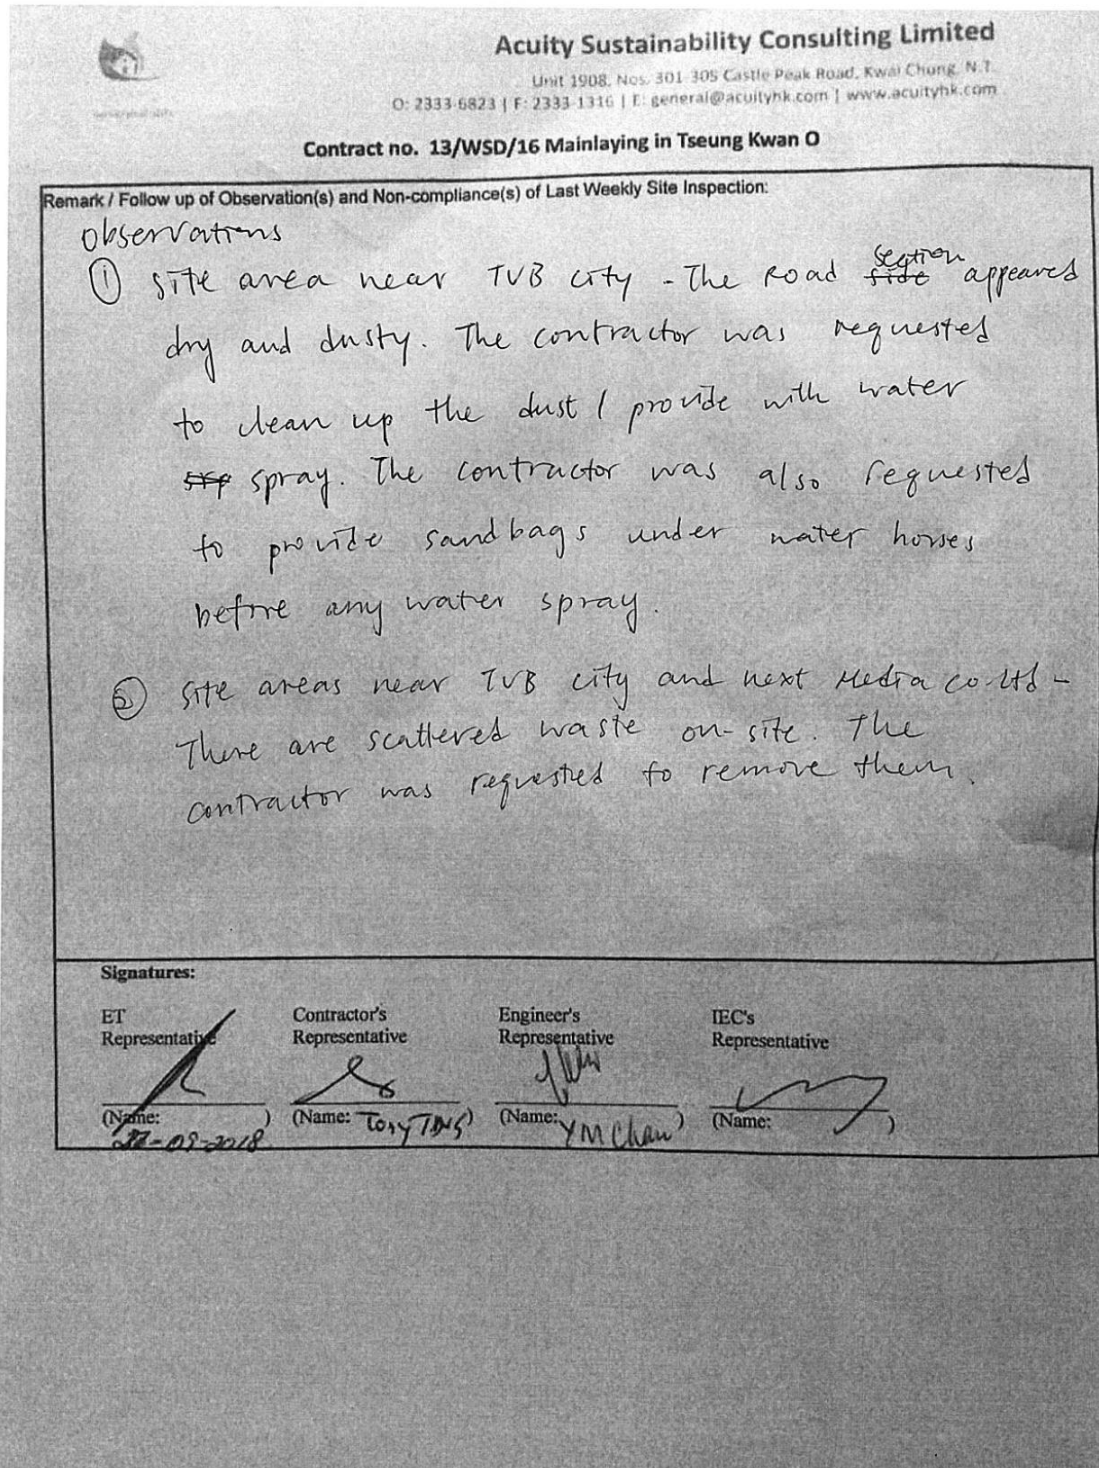 Acuity Sustainability Consulting Limited
Unit 1908, Nos. 301-305 Castle Peak Road, Kwai Chung, N.T.
O: 2333-6823 | F: 2333-1316 | E: general@acuityhk.com | www.acuityhk.com
Contract no. 13/WSD/16 Mainlaying in Tseung Kwan O
Remark / Follow up of Observation(s) and Non-compliance(s) of Last Weekly Site Inspection:
Observations
① Site area near TVB city - The Road side section appeared
dry and dusty. The contractor was requested
to clean up the dust / provide with water
spray. The contractor was also requested
to provide sandbags under water horses
before any water spray.
② Site areas near TVB city and next Media co. Ltd -
There are scattered waste on-site. The
contractor was requested to remove them.
Signatures:
ET Representative
Contractor's Representative
Engineer's Representative
IEC's Representative
(Name: )
(Name: Tony )
(Name: YM Chan )
(Name: )
-09-2018